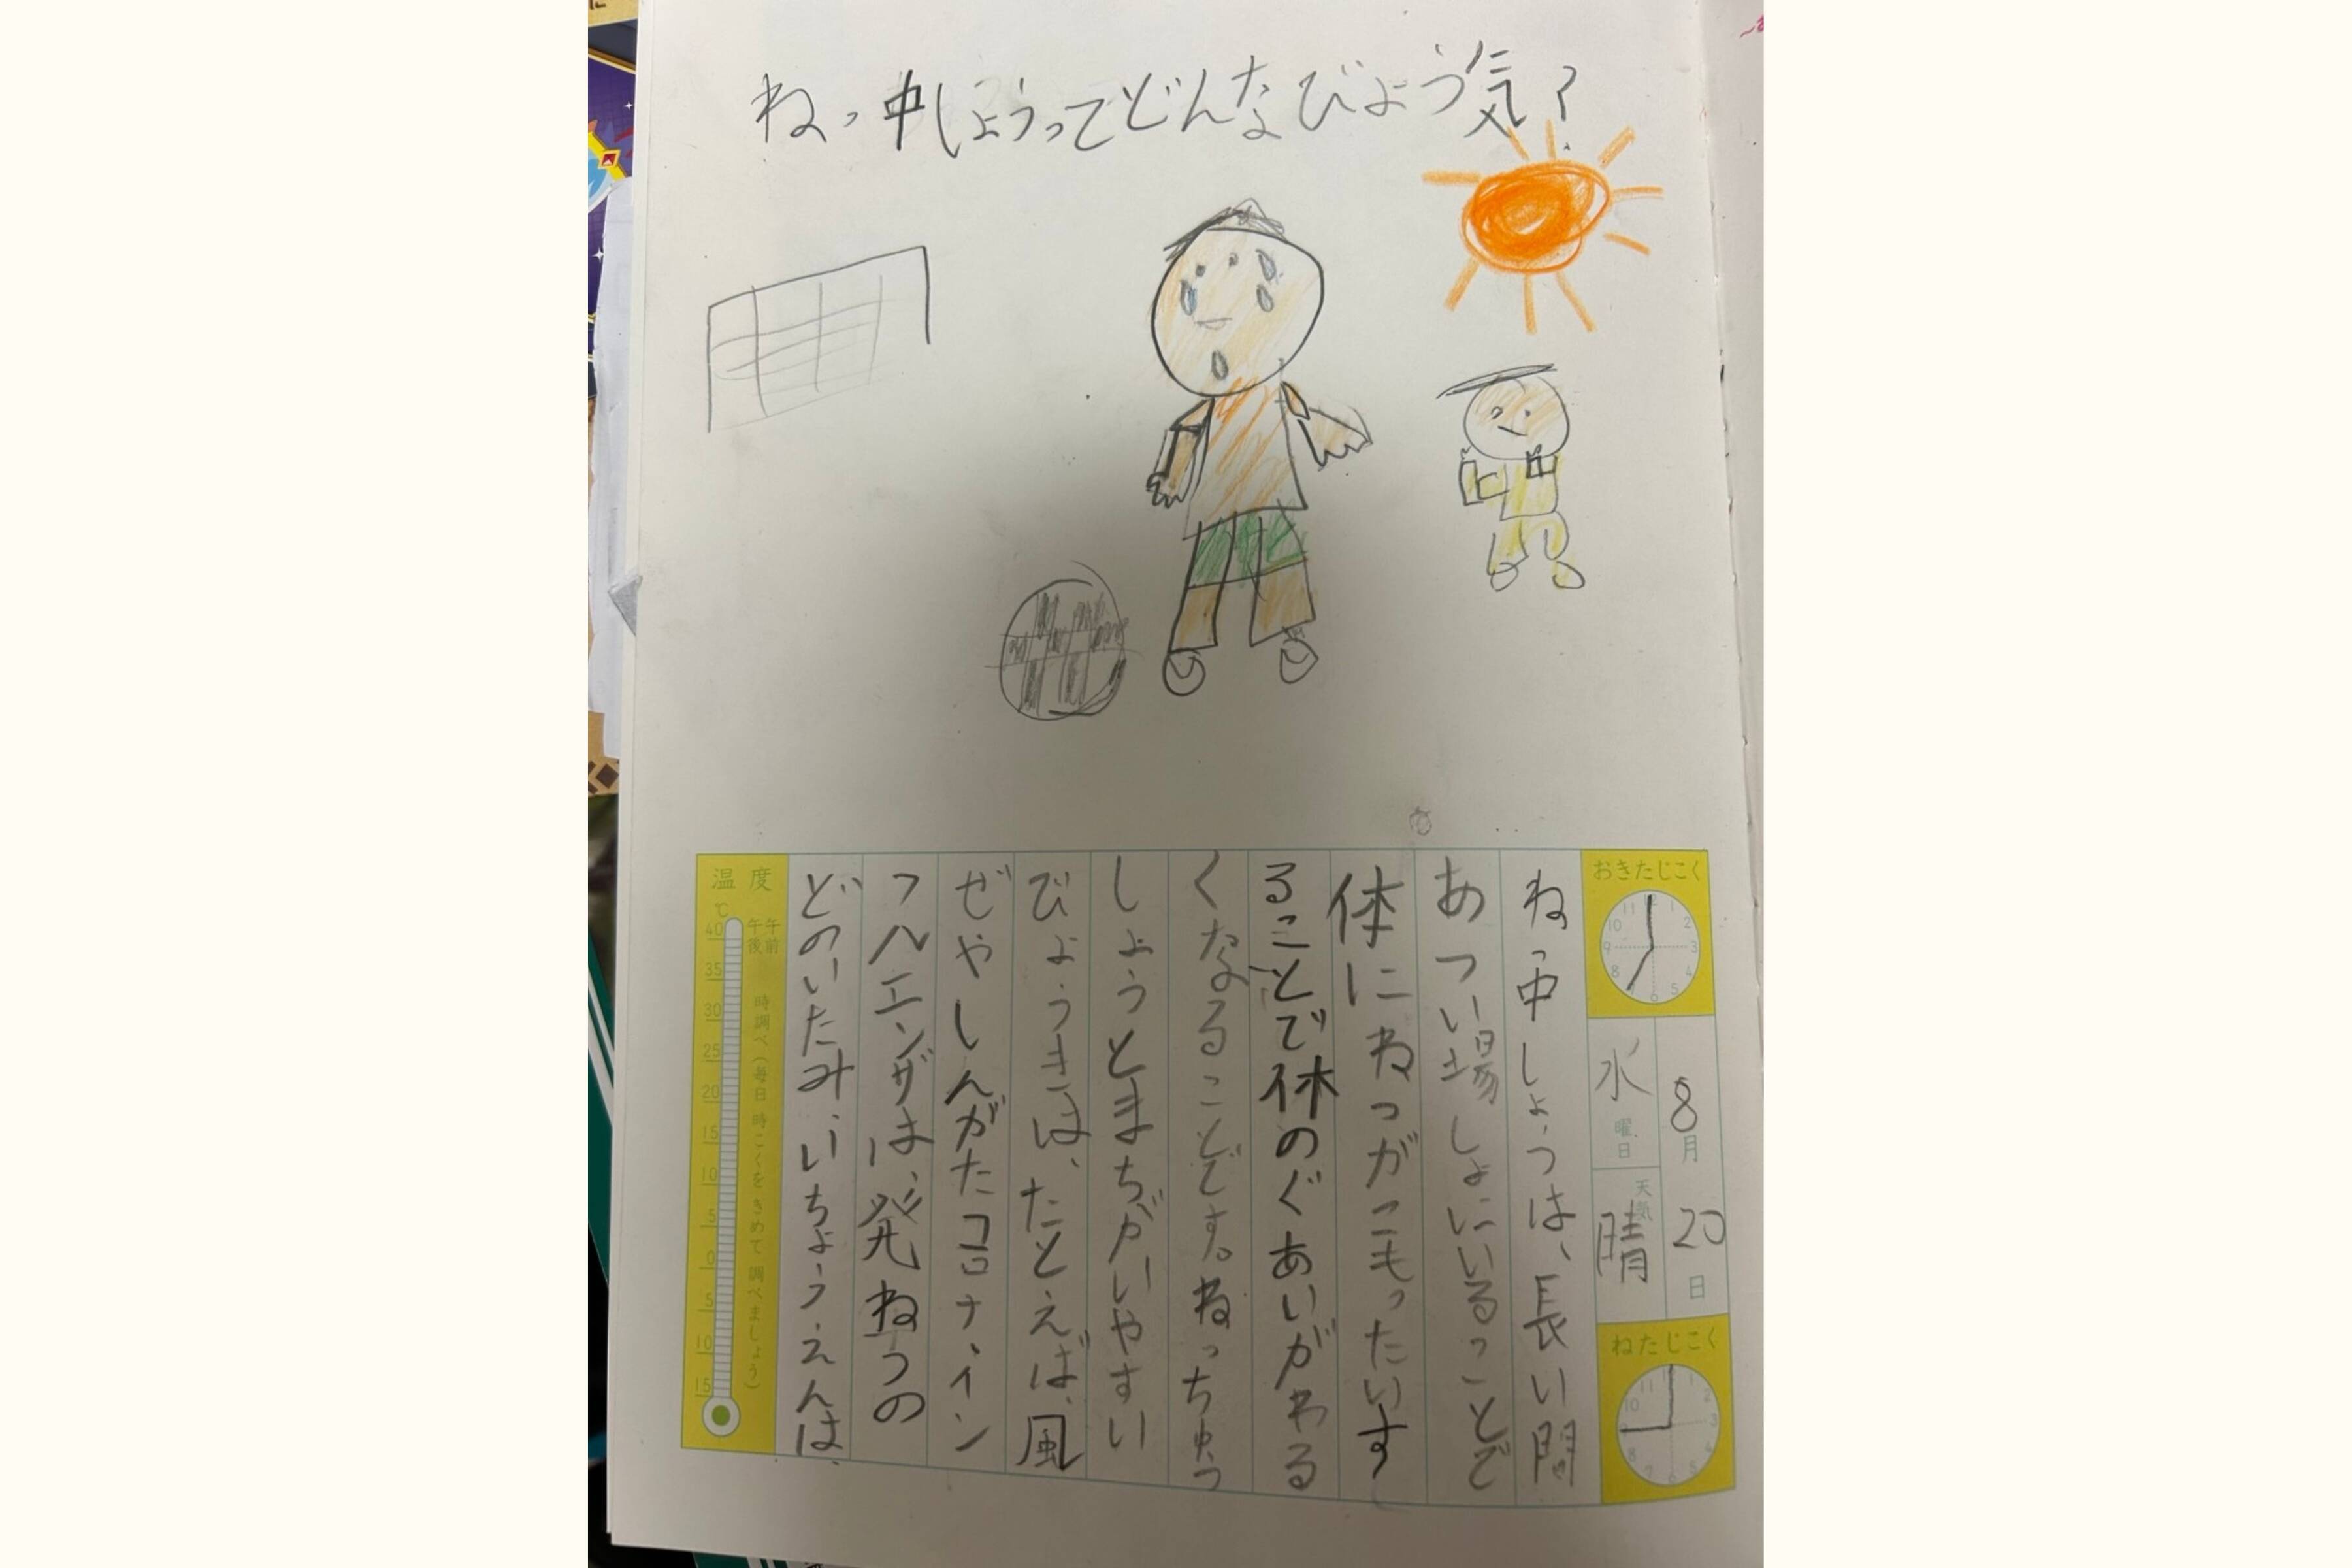 ねっ中しょうってどんなびょう気?
おきたじこく
8月20日
水曜日
天気
晴
ねたじこく
ねっ中しょうは、長い間
あつい場しょにいるっことで
体にねっがこもったいす
ることで体のぐあいがわる
くなることです。ねっちゅう
しょうとまちがいやすい
びょうきは、たとえば、風
ぜやしんがたコロナ、イン
フルエンザは、発ねつの
どのいたみ、いちょうえんは、
温度
℃
午前
午後
時調べ(毎日 時こくをきめて調べましょう)
40
35
30
25
20
15
10
5
0
5
10
15